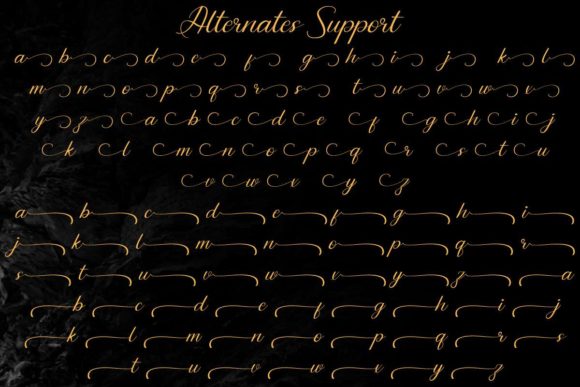 Alternates Support
a b c d e f g h i j k l
m n o p q r s t u v w x
y z a b c d e f g h i j
k l m n o p q r s t u
v w x y z
a b c d e f g h i
j k l m n o p q r
s t u v w x y z a
b c d e f g h i j
k l m n o p q r s
t u v w x y z